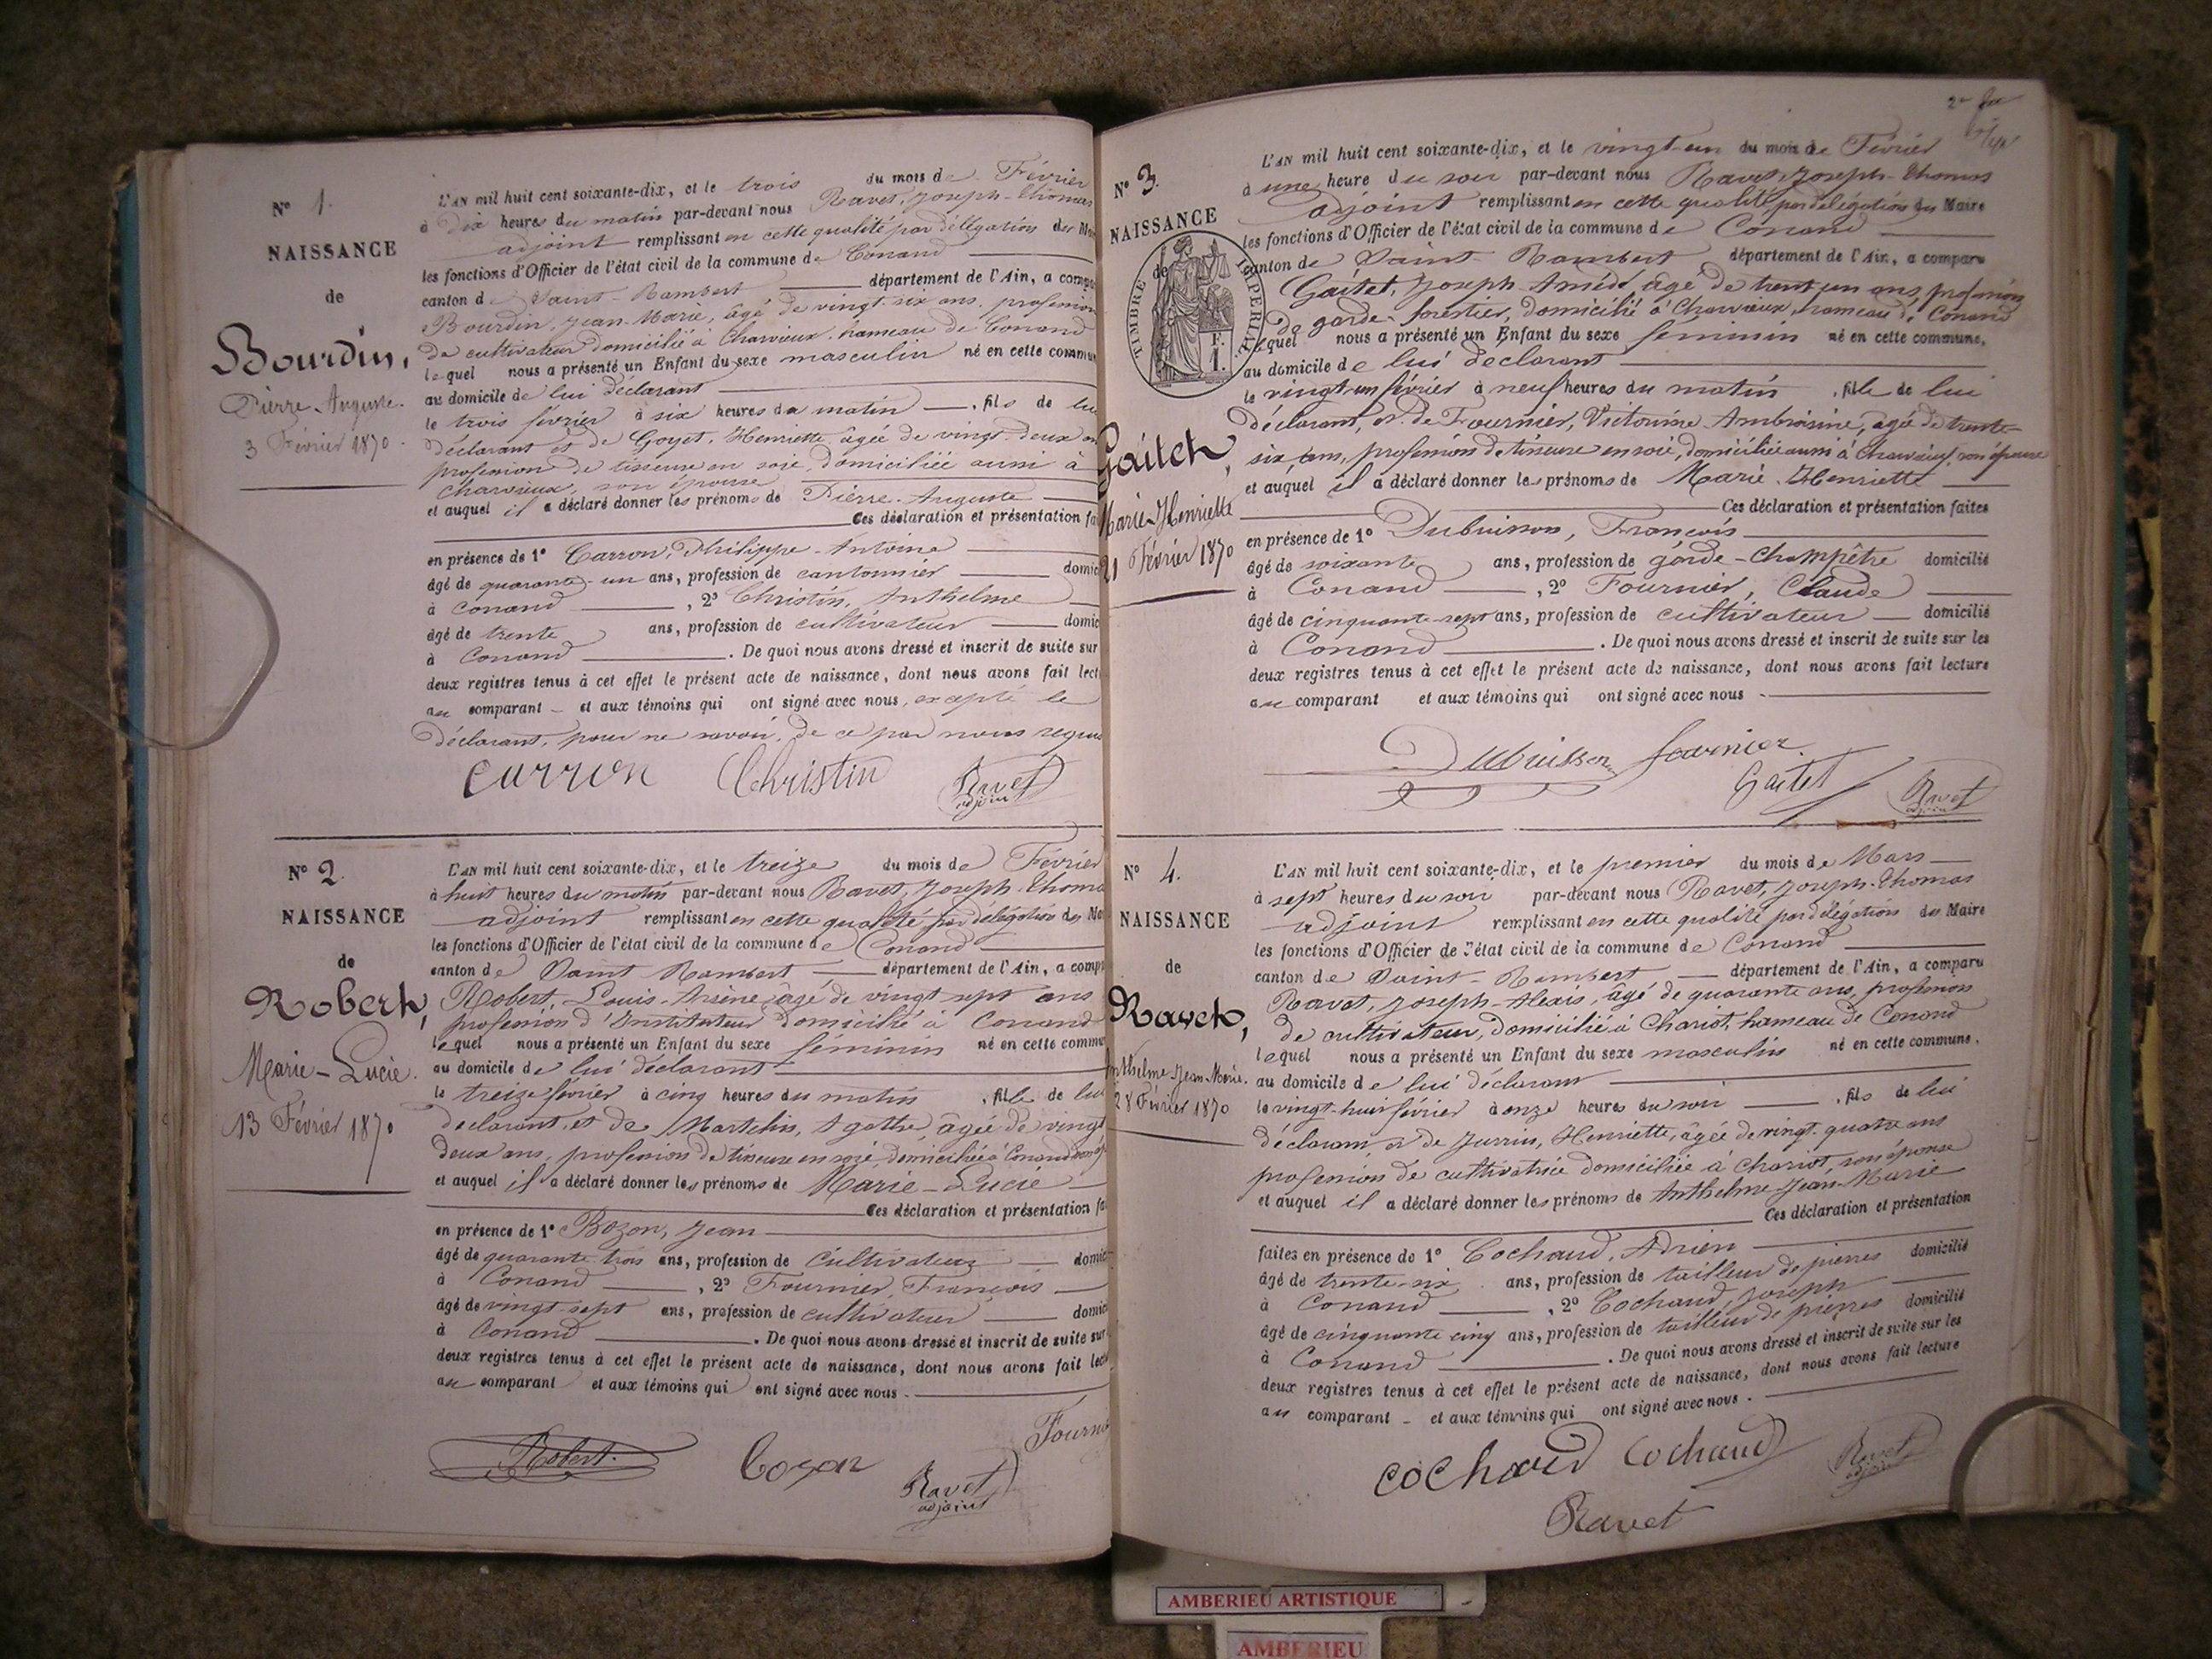 N° 1.
NAISSANCE
de
Bourdin,
Pierre-Auguste.
3 Février 1870.
L'AN mil huit cent soixante-dix, et le trois du mois de Février
à dix heures du matin par-devant nous Ravet, Joseph-Thomas
adjoint remplissant en cette qualité par délégation du
les fonctions d'Officier de l'état civil de la commune de Conand
canton de Saint-Rambert département de l'Ain, a
Bourdin, Jean-Marie, âgé de vingt-six ans, profession
de cultivateur domicilié à Charvieux, hameau de Conand
lequel nous a présenté un Enfant du sexe masculin né en cette
au domicile de lui déclarant
le trois février à six heures du matin, fils de lui
déclarant et de Goyet, Henriette âgée de vingt-deux
profession de tisseuse en soie, domiciliée aussi à
Charvieux, son épouse
et auquel il a déclaré donner les prénoms de Pierre-Auguste
Ces déclaration et présentation
en présence de 1° Carron, Philippe-Antoine
âgé de quarante-un ans, profession de cantonnier
à Conand, 2° Christin, Anthelme
âgé de trente ans, profession de cultivateur
à Conand. De quoi nous avons dressé et inscrit de suite sur
deux registres tenus à cet effet le présent acte de naissance, dont nous avons fait
au comparant et aux témoins qui ont signé avec nous, excepté le
déclarant, pour ne savoir, de ce par nous requis
Carron Christin Ravet
adjoint
N° 2.
NAISSANCE
de
Robert,
Marie-Lucie.
13 Février 1870
L'AN mil huit cent soixante-dix, et le treize du mois de Février
à huit heures du matin par-devant nous Ravet, Joseph-Thomas
adjoint remplissant en cette qualité par délégation du
les fonctions d'Officier de l'état civil de la commune de Conand
canton de Saint Rambert département de l'Ain, a
Robert, Louis-Arsène, âgé de vingt-sept ans
profession d'Instituteur domicilié à Conand
lequel nous a présenté un Enfant du sexe féminin né en cette
au domicile de lui déclarant
le treize février à cinq heures du matin, fille de lui
déclarant, et de Martelin, Agathe, âgée de vingt
deux ans, profession de tisseuse en soie, domiciliée à Conand
et auquel il a déclaré donner les prénoms de Marie-Lucie
Ces déclaration et présentation
en présence de 1° Bozon, Jean
âgé de quarante-trois ans, profession de cultivateur
à Conand, 2° Fournier, François
âgé de vingt-sept ans, profession de cultivateur
à Conand. De quoi nous avons dressé et inscrit de suite sur
deux registres tenus à cet effet le présent acte de naissance, dont nous avons fait
au comparant et aux témoins qui ont signé avec nous.
Fournier
Robert. Bozon Ravet
adjoint
N° 3.
NAISSANCE
de
TIMBRE IMPERIAL
F.
1.
Gaitet,
Marie-Henriette
21 Février 1870
L'AN mil huit cent soixante-dix, et le vingt-un du mois de Février
à une heure du soir par-devant nous Ravet, Joseph-Thomas
adjoint remplissant en cette qualité par délégation du Maire
les fonctions d'Officier de l'état civil de la commune de Conand
canton de Saint-Rambert département de l'Ain, a comparu
Gaitet, Joseph-Amédé, âgé de trente un ans, profession
de garde-forestier, domicilié à Charvieux, hameau de Conand
lequel nous a présenté un Enfant du sexe féminin né en cette commune,
au domicile de lui déclarant
le vingt-un février à neuf heures du matin, fille de lui
déclarant, et de Fournier, Victorine-Ambroisine, âgée de trente-
six ans, profession de tisseuse en soie, domiciliée aussi à Charvieux, son épouse
et auquel il a déclaré donner les prénoms de Marie-Henriette
Ces déclaration et présentation faites
en présence de 1° Dubuisson, François
âgé de soixante ans, profession de garde-champêtre domicilié
à Conand, 2° Fournier, Claude
âgé de cinquante-sept ans, profession de cultivateur domicilié
à Conand. De quoi nous avons dressé et inscrit de suite sur les
deux registres tenus à cet effet le présent acte de naissance, dont nous avons fait lecture
au comparant et aux témoins qui ont signé avec nous
Dubuisson fournier
Gaitet Ravet
adjoint
N° 4.
NAISSANCE
de
Ravet,
Anthelme-Jean-Marie.
28 Février 1870
L'AN mil huit cent soixante-dix, et le premier du mois de Mars
à sept heures du soir par-devant nous Ravet, Joseph-Thomas
adjoint remplissant en cette qualité par délégation du Maire
les fonctions d'Officier de l'état civil de la commune de Conand
canton de Saint-Rambert département de l'Ain, a comparu
Ravet, Joseph-Alexis, âgé de quarante ans, profession
de cultivateur, domicilié à Chariot, hameau de Conand
lequel nous a présenté un Enfant du sexe masculin né en cette commune,
au domicile de lui déclarant
le vingt-huit février à onze heures du soir, fils de lui
déclarant, et de Jurrin, Henriette, âgée de vingt-quatre ans
profession de cultivatrice domiciliée à Chariot, son épouse
et auquel il a déclaré donner les prénoms de Anthelme-Jean-Marie
Ces déclaration et présentation
faites en présence de 1° Cochaud, Adrien
âgé de trente-six ans, profession de tailleur de pierres domicilié
à Conand, 2° Cochaud, Joseph
âgé de cinquante cinq ans, profession de tailleur de pierres domicilié
à Conand. De quoi nous avons dressé et inscrit de suite sur les
deux registres tenus à cet effet le présent acte de naissance, dont nous avons fait lecture
au comparant et aux témoins qui ont signé avec nous.
Cochaud Cochaud Ravet
adjoint
Ravet
AMBERIEU ARTISTIQUE
AMBERIEU